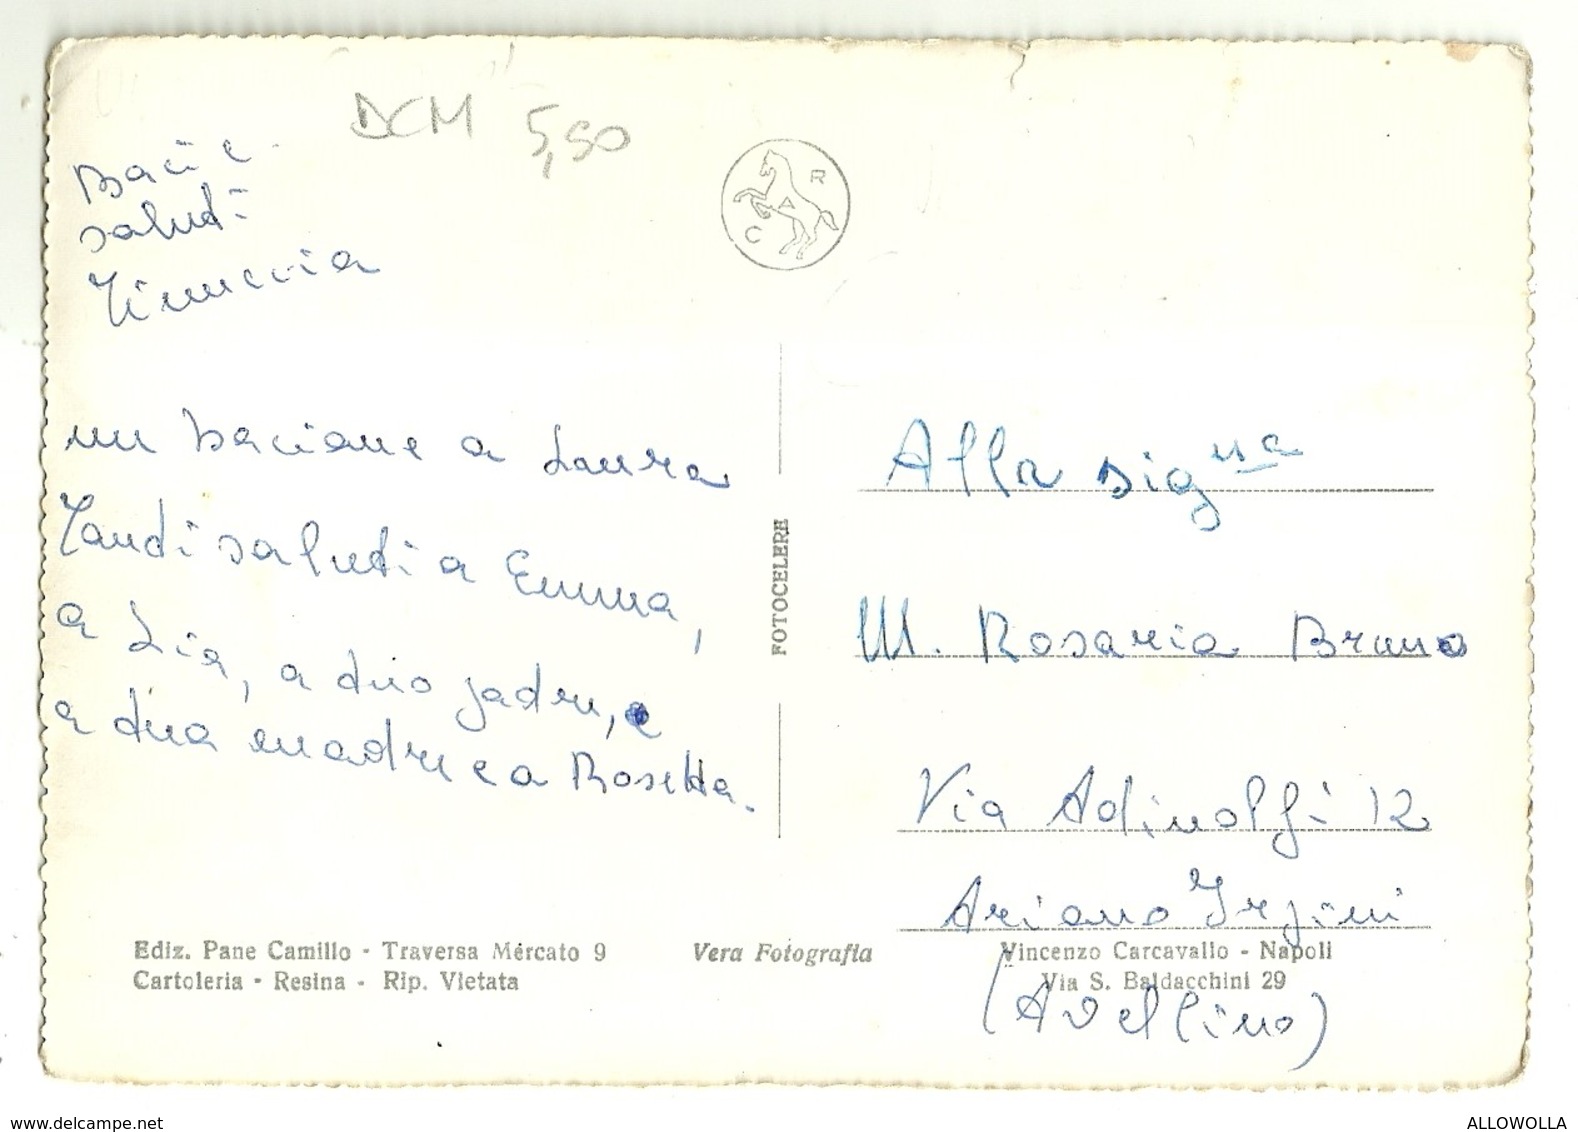 DCM 5,50
Baci e
saluti
Tinuccia
un bacione a Laura
Tanti saluti a Emma,
a Lia, a tuo padre, e
a tua madre e a Rosetta.
C A R
FOTOCELERE
Alla sig.na
M. Rosaria Bruno
Via Adinolfi 12
Ariano Irpini
(Avellino)
Ediz. Pane Camillo - Traversa Mercato 9
Cartoleria - Resina - Rip. Vietata
Vera Fotografia
Vincenzo Carcavallo - Napoli
Via S. Baldacchini 29
www.delcampe.net
ALLOWOLLA